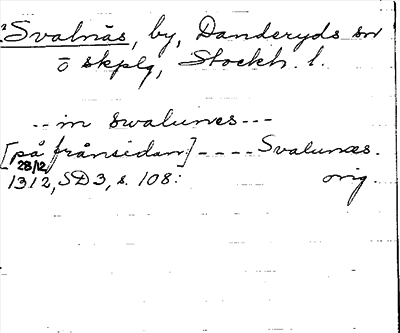 Svalnäs, by, Danderyds sn
ö skplg, Stockh. l.
-- in swalunes ---
[på frånsidan] ---- Svalunæs.
28/12
1312, SD3, s. 108: orig.